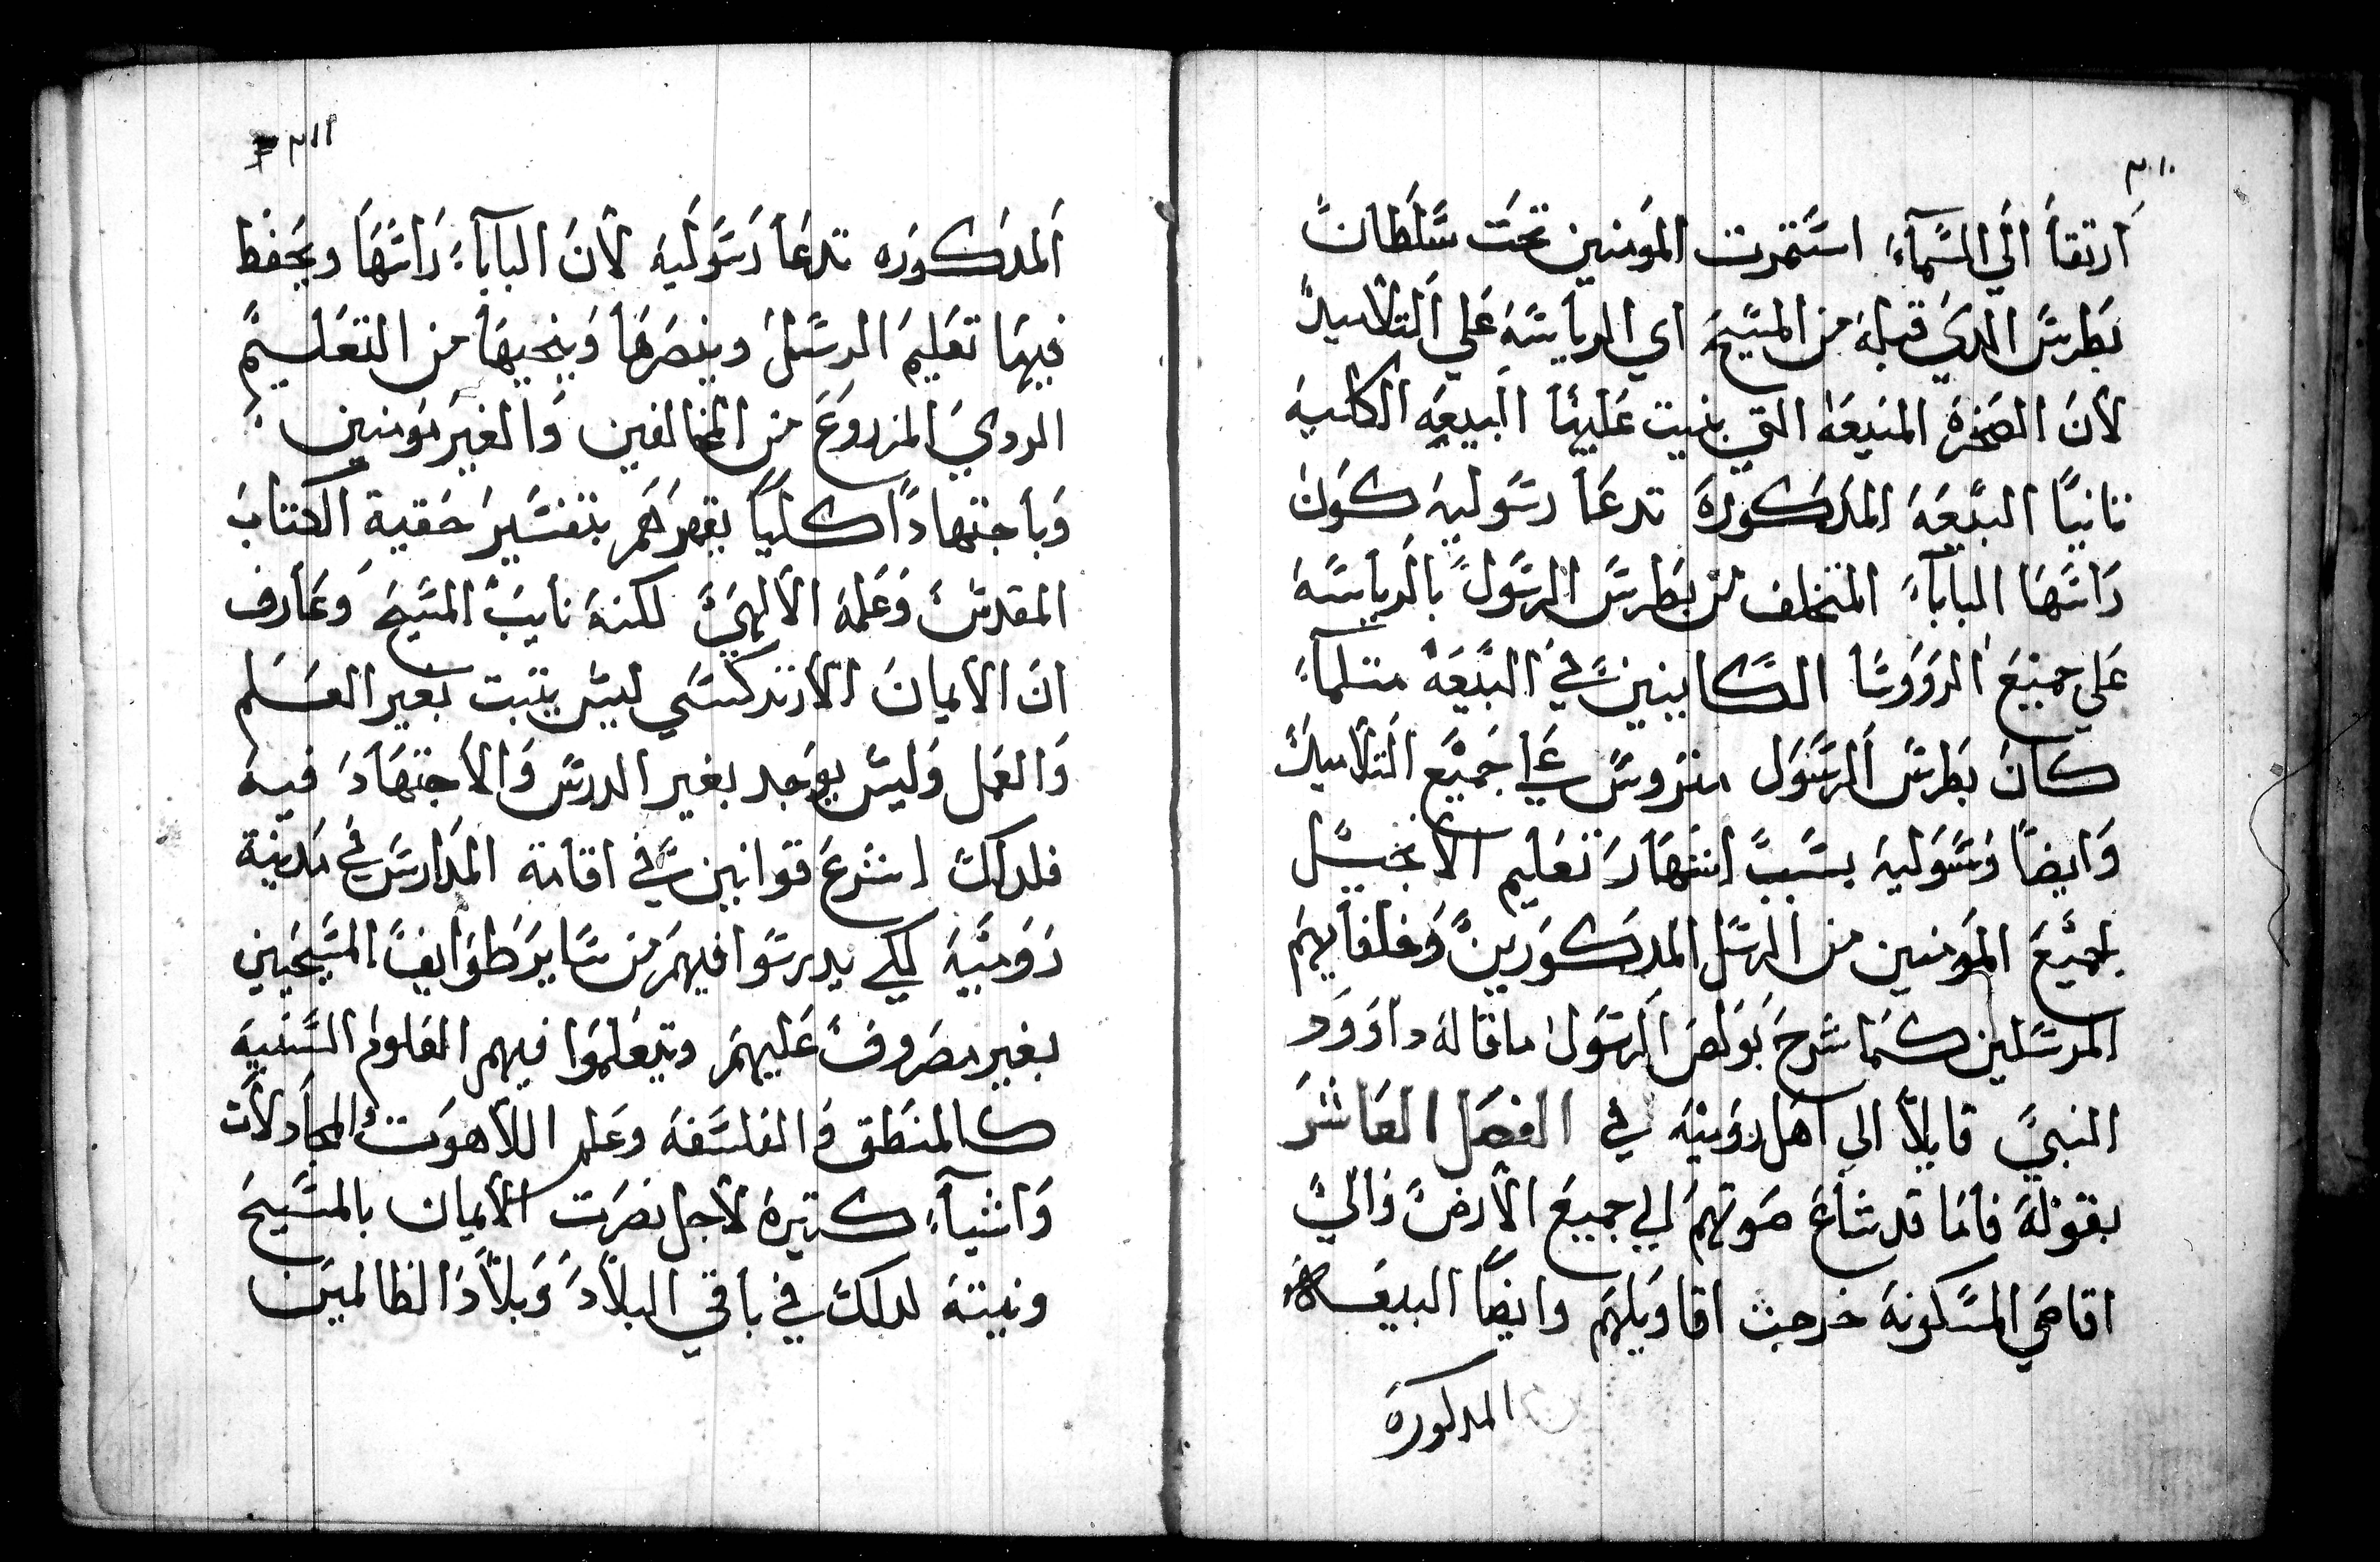 ٢١٠
ارتقا الي السمآء استمرت المومنين تحت سلطان
بطرس الدي قبله من المسيح اي الرياسه علي التلاميد
لان الصخره المنيعه التي بنيت عليها البيعه الكليه
تانيًا البيعه المدكوره تدعا رسوليه كون
راسها البابآء المتخلف من بطرس الرسول بالرياسه
علي جميع الرووسا الكاينين في البيعه متلمآ
كان بطرس الرسول متروس علي جميع التلاميد
وايضًا رسوليه بسبب انتهار تعليم الانجيل
لجميع المومنين من الرسل المدكورين وخلفايهم
المرسلين كما شرح بولص الرسول ماقاله داوود
النبي قايلاً الي اهل روميه في الفصل العاشر
بقوله فاما قد شاع صوتهم الي جميع الارض والي
اقاصي المسكونه خرجت اقاويلهم وايضًا البيعه
المدكوره
٢١١
المدكوره تدعا رسوليه لان البابآء راسها ويحفظ
فيها تعليم الرسل وينصرها وينجيها من التعليم
الردي المزروع من المخالفين والغير مومنين
وباجتهادًا كليًا يقهرهم بتفسير حقية الكتاب
المقدس وعلمه الالهي لكنه نايب المسيح وعارف
ان الايمان الارتدكسي ليس يتبت بغير العلم
والعمل وليس يوجد بغير الدرس والاجتهاد فيه
فلدلك اشرع قوانين في اقامة المدارس في مدينة
روميه لكي يدرسوا فيهم من ساير طوايف المسيحيين
بغير مصروف عليهم ويتعلموا فيهم العلوم السنيه
كالمنطق والفلسفه وعلم اللاهوت المجادلات
واشيآء كتيره لاجل نصرت الايمان بالمسيح
ونيته لدلك في باقي البلاد وبلاد الظالمين